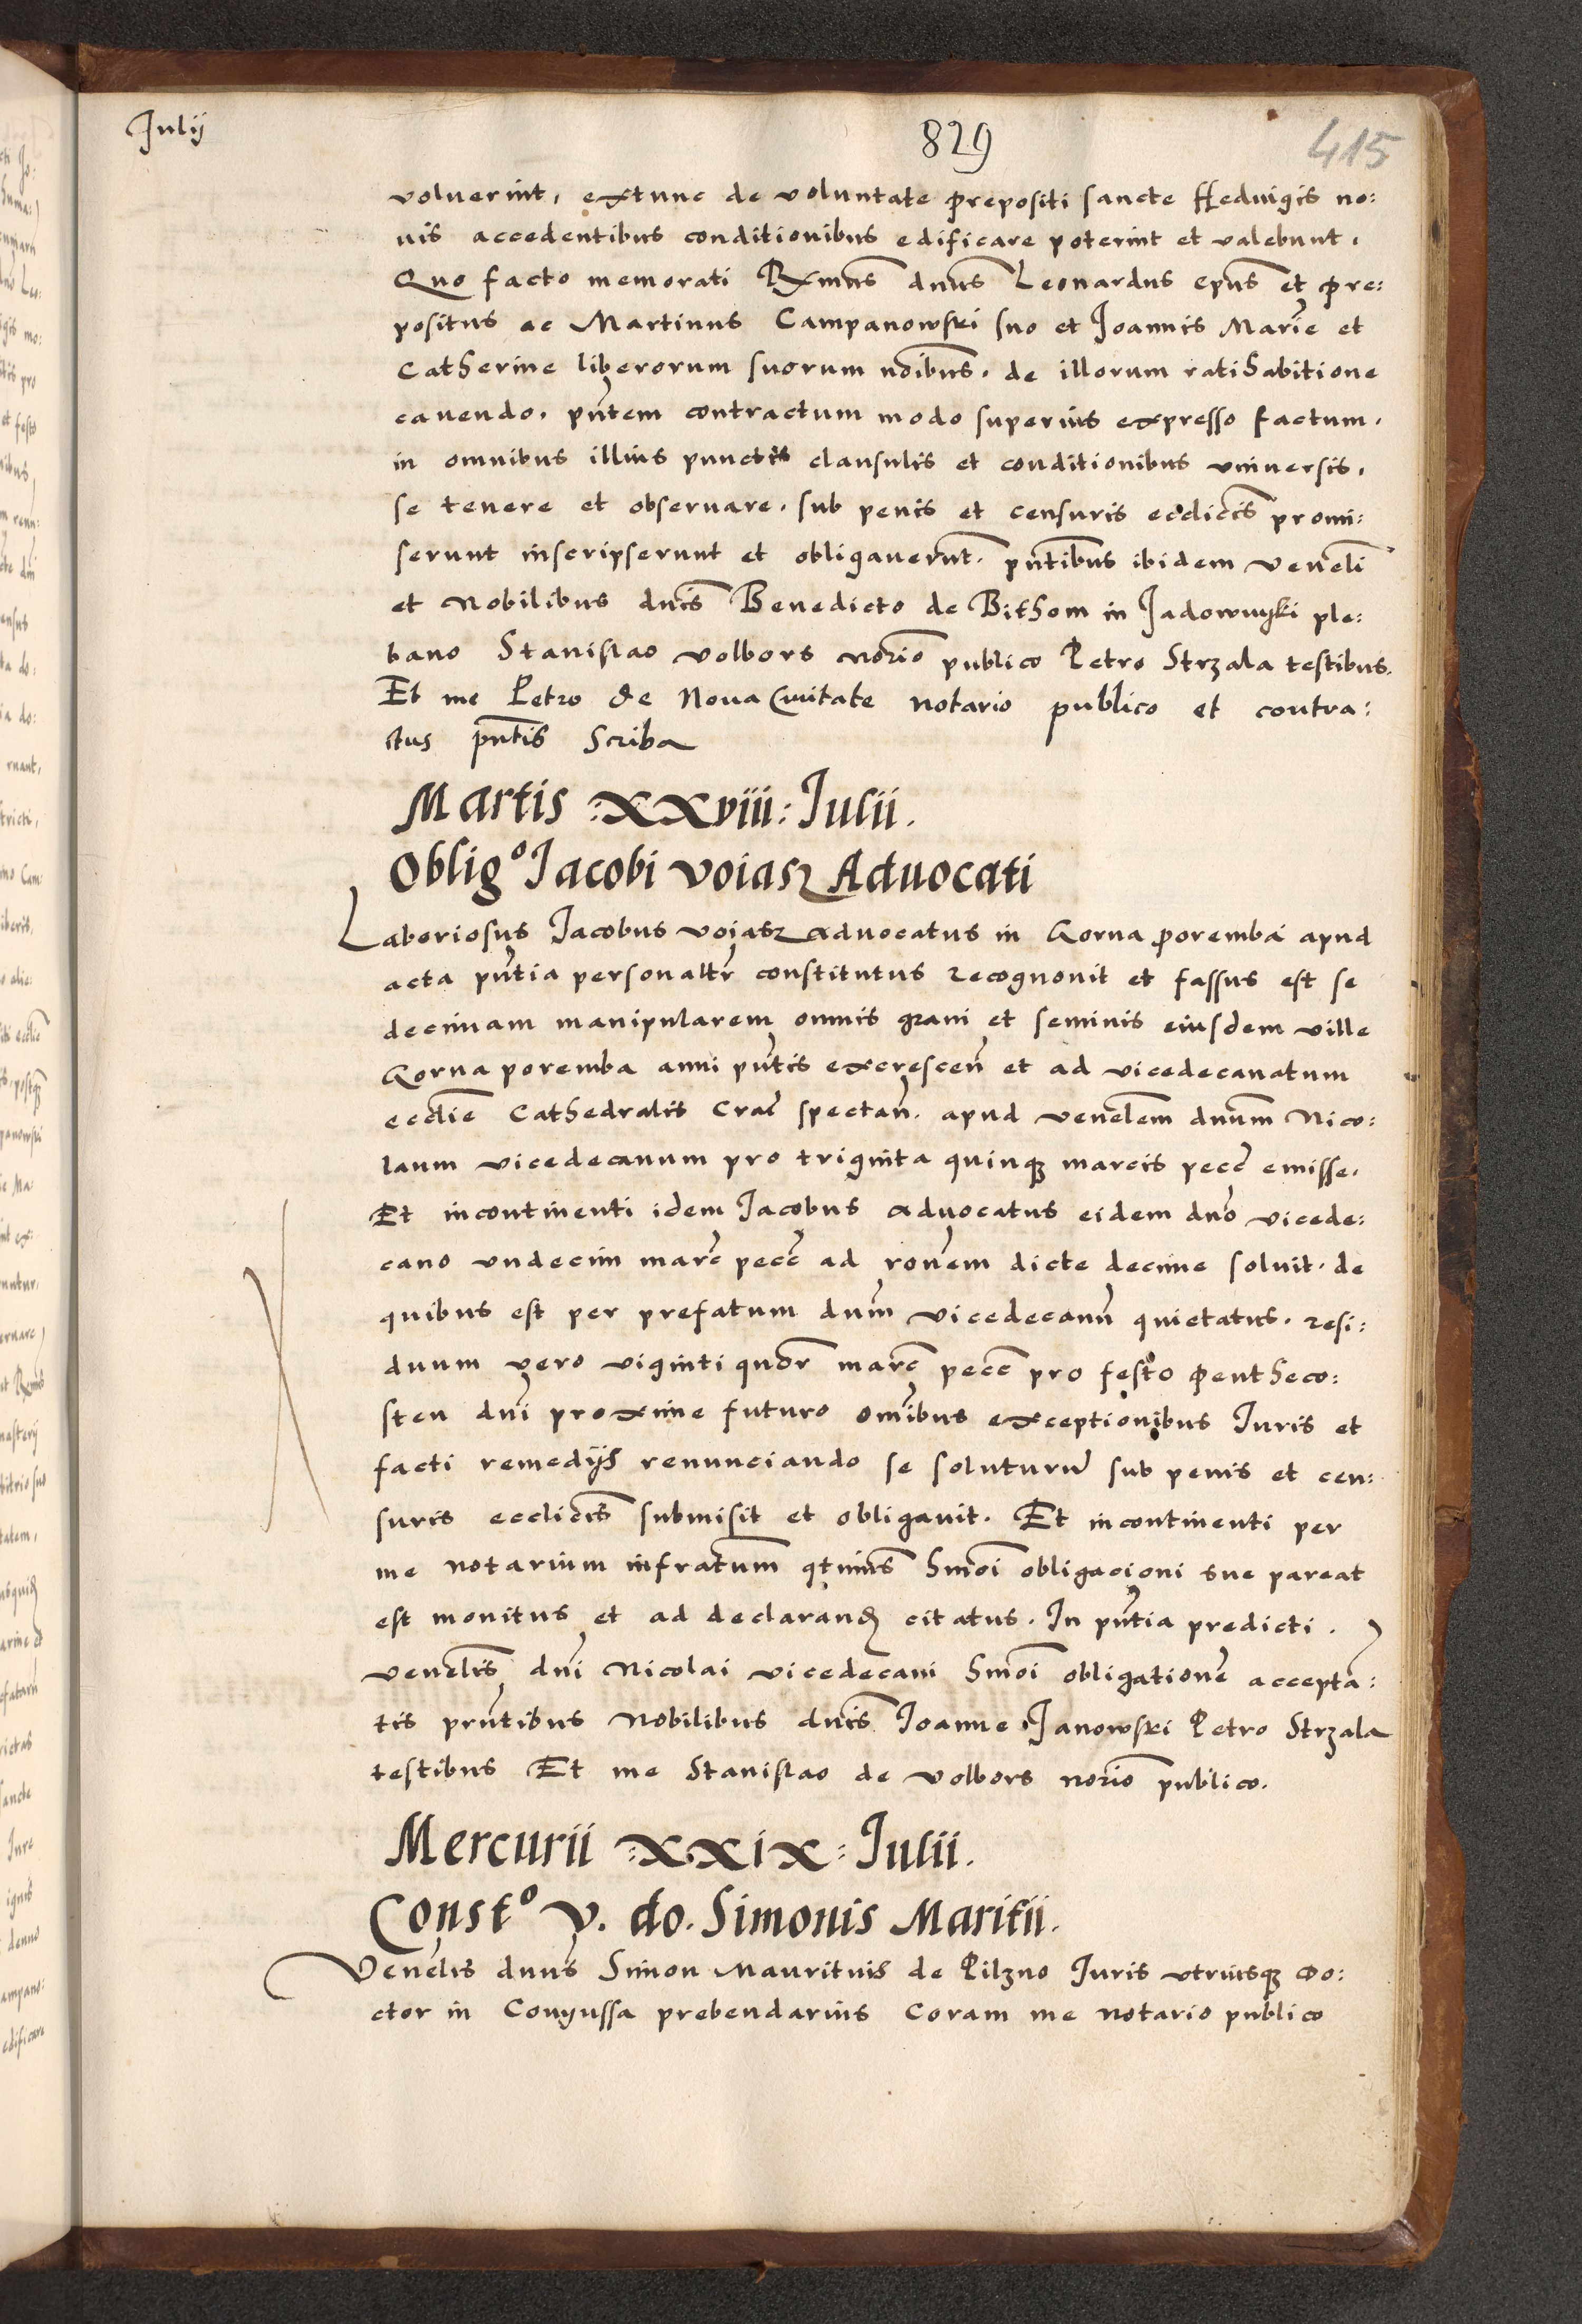 Julij
829
415
voluerint, extunc de voluntate prepositi sancte Heduigis no:
uis accedentibus conditionibus edificare poterint et valebunt.
Quo facto memorati Rxmus dnus Leonardus epus et pre:
positus ac Martinus Campanowski suo et Joannis Marie et
Catherine liberorum suorum noibus. de illorum ratihabitione
cauendo. pntem contractum modo superius expresso factum.
in omnibus illius punctis clausulis et conditionibus vniuersis.
se tenere et obseruare. sub penis et censuris ecclicis promi:
serunt inscripserunt et obligauerunt. pntibus ibidem veneli
et Nobilibus dnis Benedicto de Bithom in Jadownyki ple:
bano Stanislao volbors norio publico Petro Strzala testibus.
Et me Petro de Noua Ciuitate notario publico et contra:
ctus pntis Scriba
Martis :xxviii: Julii.
Oblig° Jacobi Voiasz Aduocati
Laboriosus Jacobus voiasz aduocatus in Gorna poremba apud
acta pntia personaltr constitutus recognouit et fassus est se
decimam manipularem omnis grani et seminis eiusdem ville
Gorna poremba anni pntis excrescen et ad vicedecanatum
ecclie Cathedralis Crac spectan. apud venelem dnum Nico:
laum vicedecanum pro triginta quinq marcis pecc emisse.
Et incontinenti idem Jacobus aduocatus eidem dno vicede:
cano vndecim marc pecc ad ronem dicte decime soluit. de
quibus est per prefatum dnm vicedecanum quietatus. resi:
duum vero viginti quor marc pecc pro festo Pentheco:
sten dni proxime futuro omibus exceptionibus Iuris et
facti remedijs renunciando se soluturu sub penis et cen:
suris ecclicis submisit et obligauit. Et incontinenti per
me notarium infratum qtinus hmoi obligacioni sue pareat
est monitus et ad declarand citatus. In pntia predicti.
venelis dni Nicolai vicedecani hmoi obligatione accepta:
tis prntibus Nobilibus dnis Joanne Janowski Petro Strzala
testibus Et me Stanislao de volbors norio publico.
Mercurii :xxix: Julii.
Const° V. do. Simonis Maritii.
Venelis dnus Simon Mauritius de Pilzno Iuris vtriusq Do:
ctor in Conyussa prebendarius Coram me notario publico